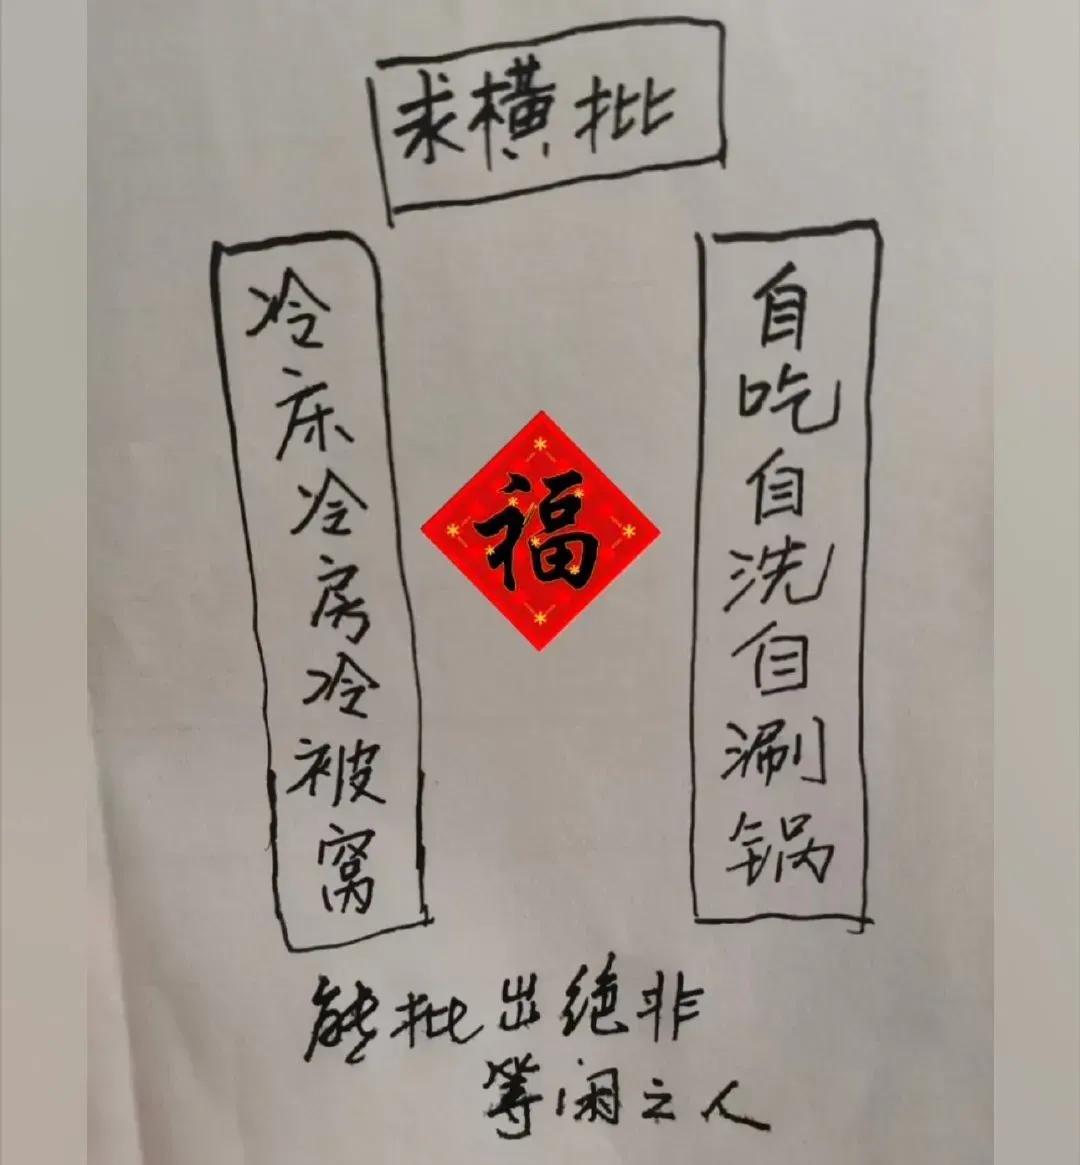 求横批
冷床冷房冷被窝
福
自吃自洗自涮锅
能批出绝非
等闲之人